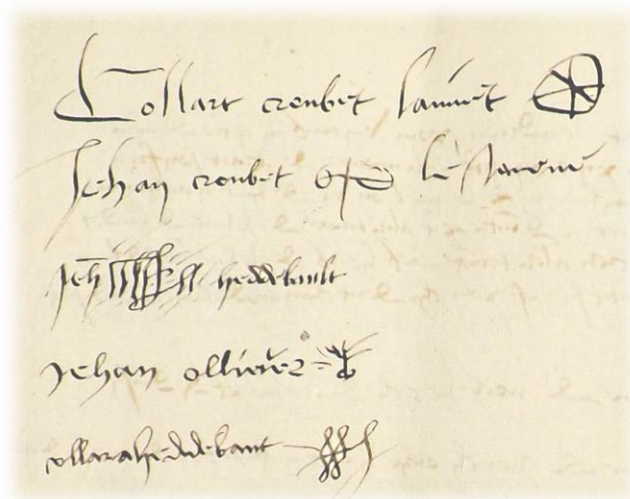 Collart croubet lamnet
Jehan croubet le Joevne
Jeh heddebault
Jehan ollivier
collara heddebaut